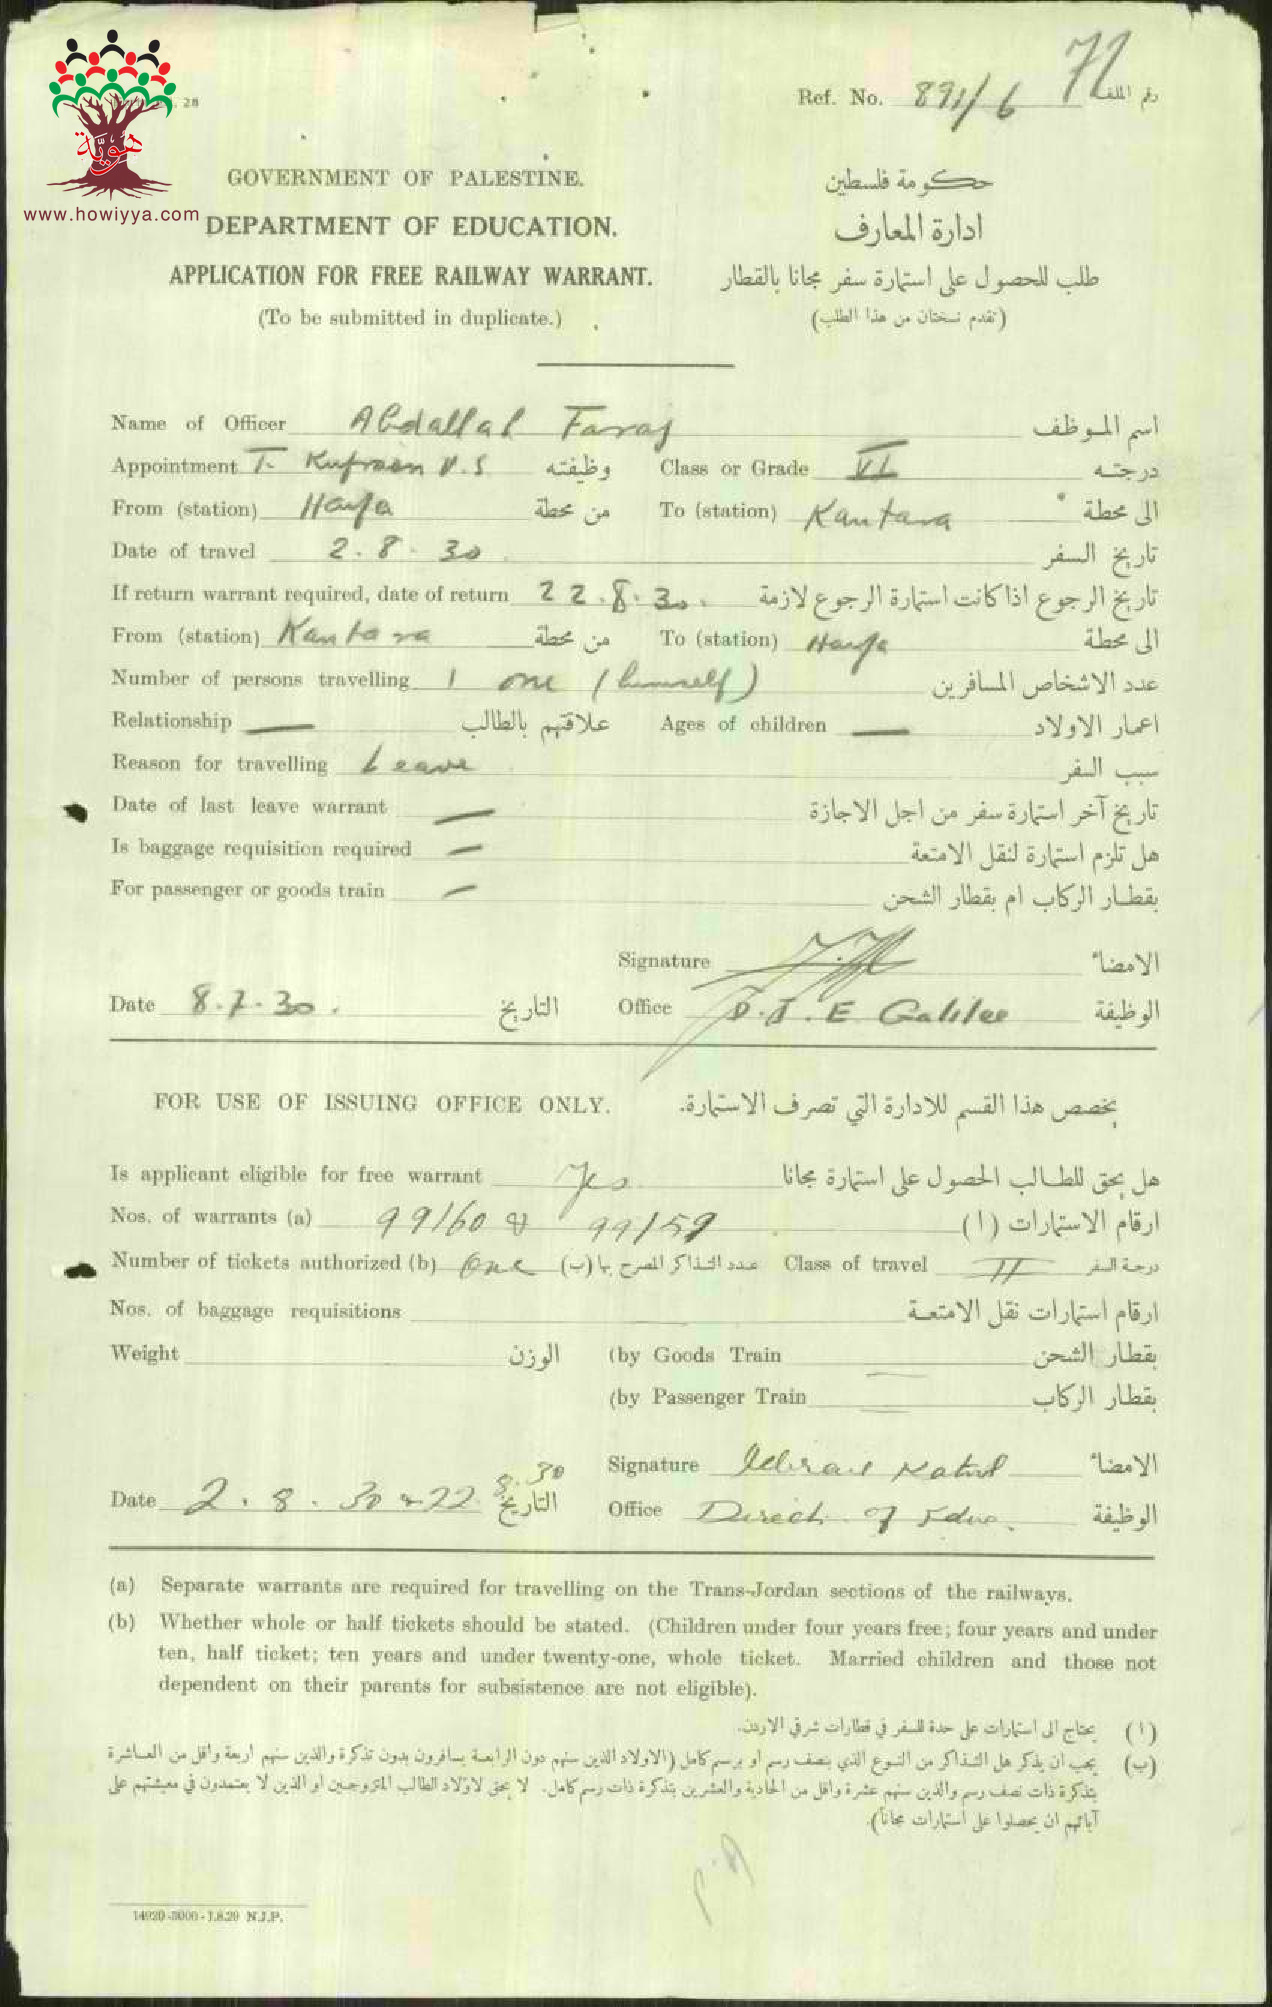 هوية
www.howiyya.com
28
Ref. No. 891/6 رقم الملف
71
GOVERNMENT OF PALESTINE. حكومة فلسطين
DEPARTMENT OF EDUCATION. ادارة المعارف
APPLICATION FOR FREE RAILWAY WARRANT. طلب للحصول على استمارة سفر مجانا بالقطار
(To be submitted in duplicate.) (تقدم نسختان من هذا الطلب)
Name of Officer Abdallah Faraj اسم الموظف
Appointment T. Kufrein V.S وظيفته Class or Grade VI درجته
From (station) Haifa من محطة To (station) Kantara الى محطة
Date of travel 2.8.30 تاريخ السفر
If return warrant required, date of return 22.8.30. تاريخ الرجوع اذا كانت استمارة الرجوع لازمة
From (station) Kantara من محطة To (station) Haifa الى محطة
Number of persons travelling 1 one (himself) عدد الاشخاص المسافرين
Relationship — علاقتهم بالطالب Ages of children — اعمار الاولاد
Reason for travelling Leave سبب السفر
Date of last leave warrant — تاريخ آخر استمارة سفر من اجل الاجازة
Is baggage requisition required — هل تلزم استمارة لنقل الامتعة
For passenger or goods train — بقطار الركاب ام بقطار الشحن
Signature الامضاء
Date 8.7.30. التاريخ Office D.I.E Galilee الوظيفة
FOR USE OF ISSUING OFFICE ONLY. يخصص هذا القسم للادارة التي تصرف الاستمارة.
Is applicant eligible for free warrant Yes هل يحق للطالب الحصول على استمارة مجانا
Nos. of warrants (a) 99160 & 99159 ارقام الاستمارات (ا)
Number of tickets authorized (b) One عدد التذاكر المصرح بها (ب) Class of travel II درجة السفر
Nos. of baggage requisitions ارقام استمارات نقل الامتعة
Weight الوزن (by Goods Train بقطار الشحن
(by Passenger Train بقطار الركاب
Signature الامضاء
Date 2.8.30 & 22.8.30 التاريخ Office Direct. of Educ. الوظيفة
(a) Separate warrants are required for travelling on the Trans-Jordan sections of the railways.
(b) Whether whole or half tickets should be stated. (Children under four years free; four years and under
ten, half ticket; ten years and under twenty-one, whole ticket. Married children and those not
dependent on their parents for subsistence are not eligible).
(ا) يحتاج الى استمارات على حدة للسفر في قطارات شرقي الاردن.
(ب) يجب ان يذكر هل التذاكر من النوع الذي بنصف رسم او برسم كامل (الاولاد الذين سنهم دون الرابعة يسافرون بدون تذكرة والذين سنهم اربعة واقل من العاشرة
بتذكرة ذات نصف رسم والذين سنهم عشرة واقل من الحادية والعشرين بتذكرة ذات رسم كامل. لا يحق لاولاد الطالب المتزوجين او الذين لا يعتمدون في معيشتهم على
آبائهم ان يحصلوا على استمارات مجاناً).
14920-3000-1.8.29 N.J.P.